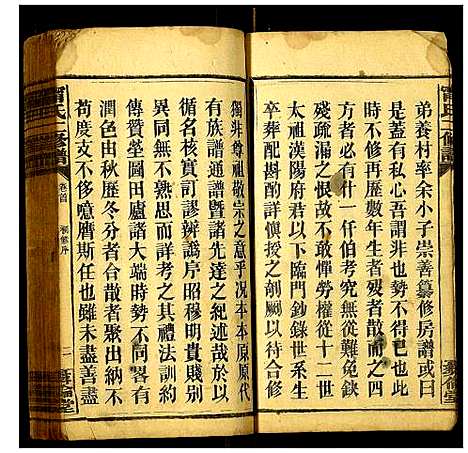 弟養材率余小子崇善纂修房譜或曰
是蓋有私心吾謂非也勢不得已也茍
時不修再歷數年生者死散而之四
方者必有什一仟伯考究無從難免鈌
殘疏漏之恨故不敢憚勞權從十二世
太祖漢陽府君以下臨門鈔錄世系生
卒葬配斟酌詳慎授之剞劂以待合修
獨非尊祖敬宗之意乎况本本原原代
有族譜通譜暨諸先達之紀述哉於以
循名核實訂謬辨譌序昭穆明貴賤别
異同無不熟思而詳考之其禮法訓約
傳贊塋圖田廬諸大端時勢不同畧有
潤色由秋歷冬分者合散者聚出納不
苟度支不侈噫庶斯任也雖未盡善盡
甯氏二修譜
卷首
二